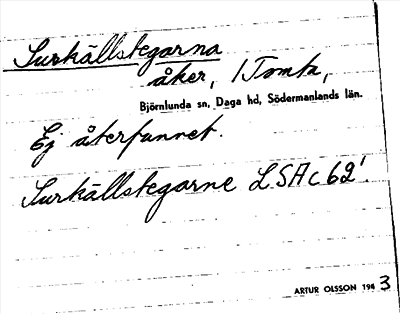 Surkällstegarna
åker, 1 Tomta,
Björnlunda sn, Daga hd, Södermanlands län.
Ej återfunnet.
Surkällstegarne LSA c 62'.
ARTUR OLSSON 1943